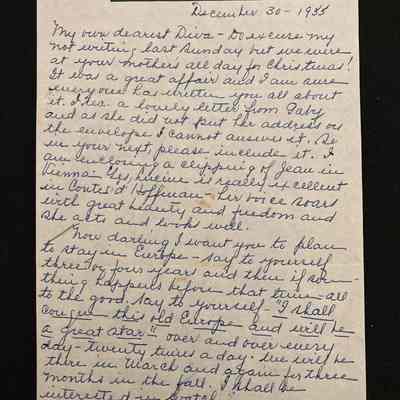 December 30 - 1955
My own dearest Diva - Do excuse my
not writing last Sunday but we were
at your mothers all day for Christmas!
It was a great affair and I am sure
everyone has written you all about
it. I rec. a lovely letter from Gaby
and as she did not put her address on
the envelope I cannot answer it. So
in your next, please include it. I
am enclosing a clipping of Jean in
Vienna. Yes, is really excellent
in Contes d'Hoffman - her voice soars
with great beauty and freedom and
she acts and looks well.
Now darling I want you to plan
to stay in Europe - say to yourself
three or four years and then if some-
thing happens before that time - all
to the good, say to yourself - "I shall
conquer this old Europe and will be
a great star" over and over every
day - twenty times a day. We will be
there in March and again for three
months in the fall. I shall be
interested in